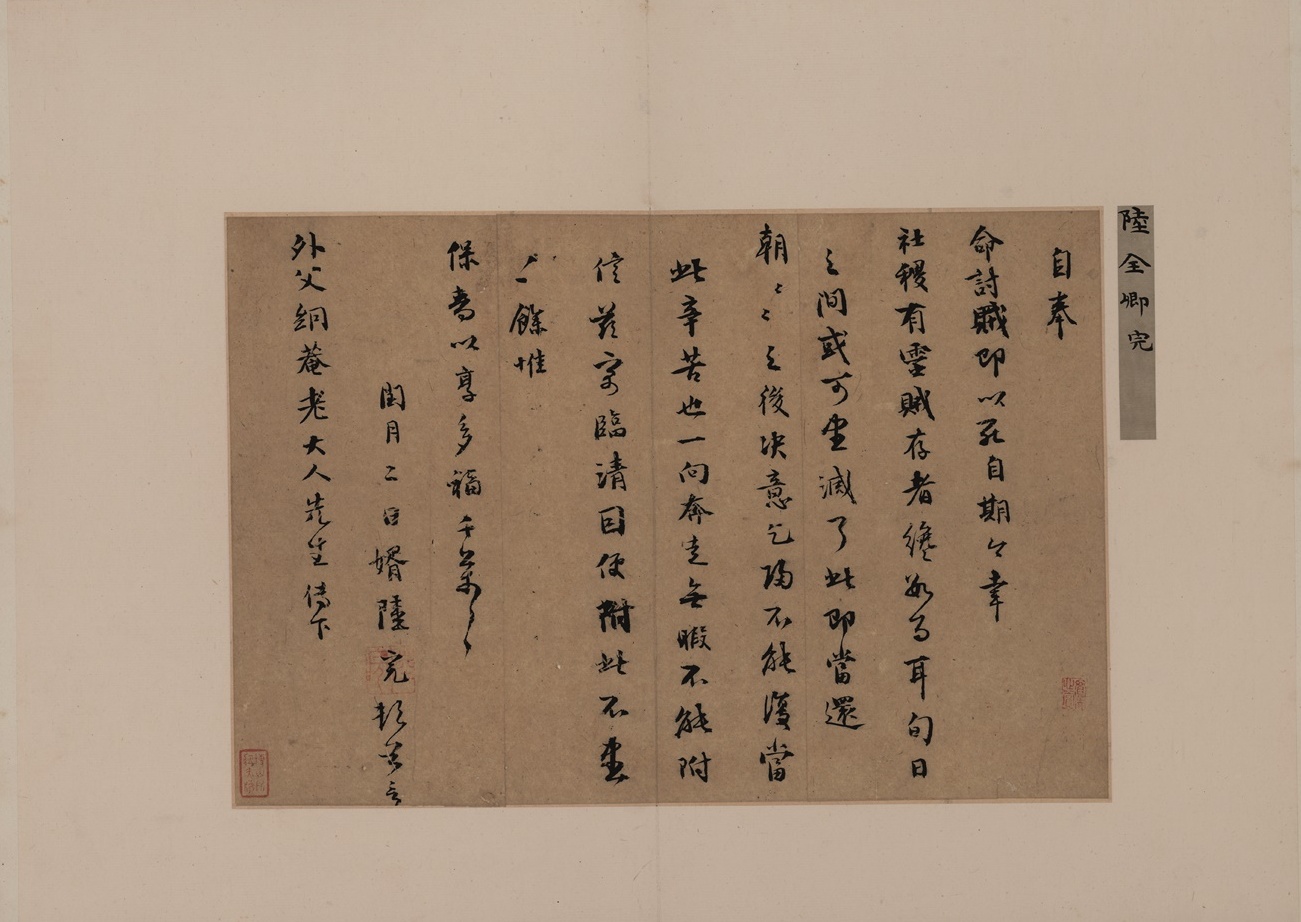 陸全卿完
自奉
命討賊即以死自期今幸
社稷有靈賊存者纔數百耳旬日
之間或可盡滅了此即當還
朝〻〻之後決意乞歸不能復當
此辛苦也一向奔走無暇不能附
信茲寄臨清因便附此不盡
一一餘惟
保嗇以享多福千万万〻〻
閏月二日婿陸完頓首言
外父絅菴老大人先生侍下